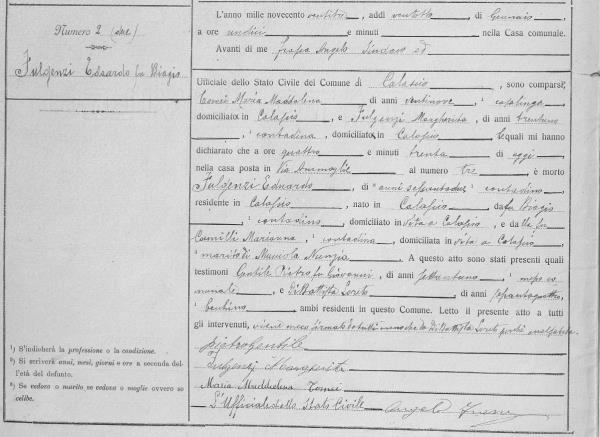 Numero 2 (due)
Fulgenzi Eduardo fu Biagio
L'anno mille novecento ventitre, addì ventotto di Gennaio,
a ore undici e minuti nella Casa comunale.
Avanti di me Angelo Sindaco ed
Ufficiale dello Stato Civile del Comune di Calascio, sono comparsi
Tomei Maria Maddalena di anni ventinove, ¹ casalinga
domiciliata in Calascio, e Fulgenzi Margherita, di anni trentuno
, ¹ contadina, domiciliata in Calascio. I quali mi hanno
dichiarato che a ore quattro e minuti trenta di oggi
nella casa posta in Via al numero tre, è morto
Fulgenzi Eduardo, di ² anni settantadue ¹ contadino,
residente in Calascio, nato in Calascio da fu Biagio
, ¹ contadino, domiciliato in vita a Calascio, e dalla fu
Camilli Marianna, ¹ contadina, domiciliata in vita a Calascio,
³ marito di Nunzia. A questo atto sono stati presenti quali
testimoni Gentile Pietro fu Giovanni, di anni settantuno, ¹ messo co
munale, e Di Battista Loreto, di anni
, ambi residenti in questo Comune. Letto il presente atto a tutti
gli intervenuti, viene meco firmato da tutti meno che da Di Battista Loreto perché analfabeta.
Pietro Gentile
Fulgenzi Margherita
Maria Maddalena Tomei
L'Ufficiale dello Stato Civile Angelo
¹) S'indicherà la professione o la condizione.
²) Si scriverà anni, mesi, giorni o ore a seconda del-
l'età del defunto.
³) Se vedovo o marito se vedova o moglie ovvero se
celibe.